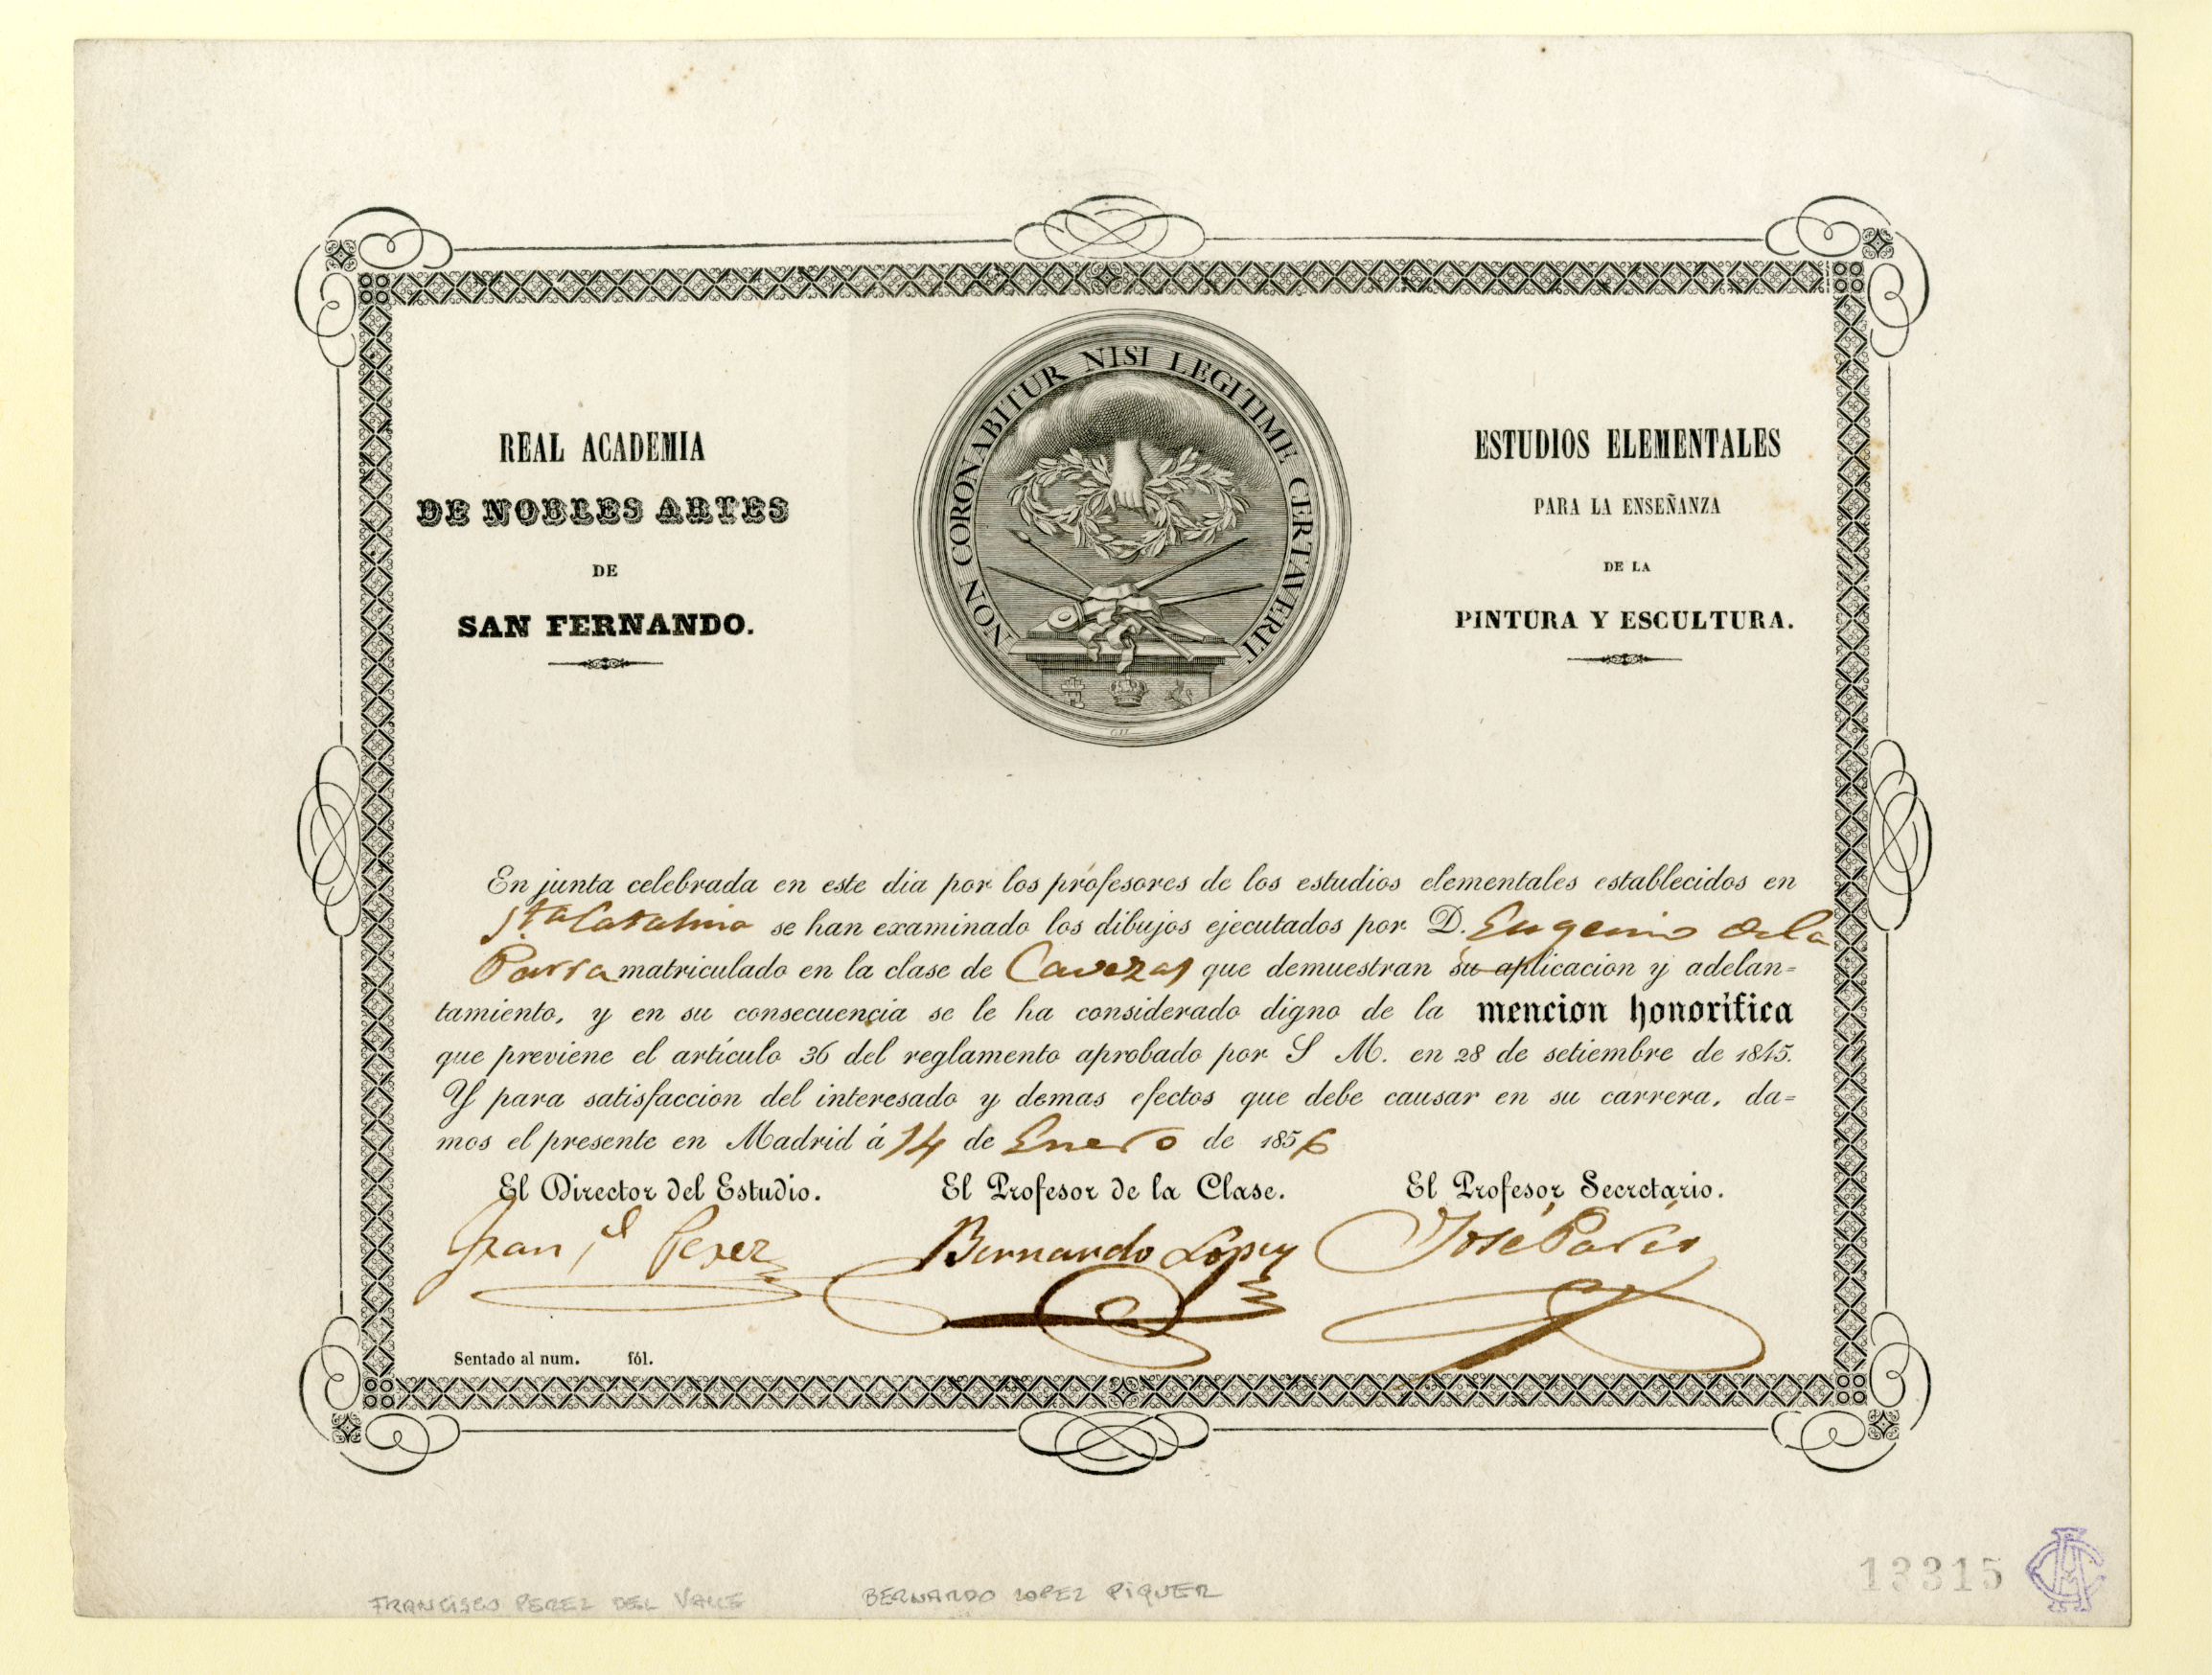 NON CORONABITUR NISI LEGITIME CERTAVERIT
REAL ACADEMIA
DE NOBLES ARTES
DE
SAN FERNANDO.
ESTUDIOS ELEMENTALES
PARA LA ENSEÑANZA
DE LA
PINTURA Y ESCULTURA.
En junta celebrada en este dia por los profesores de los estudios elementales establecidos en
Sta Catalina se han examinado los dibujos ejecutados por D. Eugenio de la
Parra matriculado en la clase de Cavezas que demuestran su aplicacion y adelan=
tamiento, y en su consecuencia se le ha considerado digno de la mencion honorífica
que previene el artículo 36 del reglamento aprobado por S M. en 28 de setiembre de 1845.
Y para satisfaccion del interesado y demas efectos que debe causar en su carrera, da=
mos el presente en Madrid á 14 de Enero de 1856
El Director del Estudio. El Profesor de la Clase. El Profesor Secretario.
Franco Perez Bernardo Lopez José París
Sentado al num. fól.
13315
FRANCISCO PEREZ DEL VALLE BERNARDO LOPEZ PIQUER